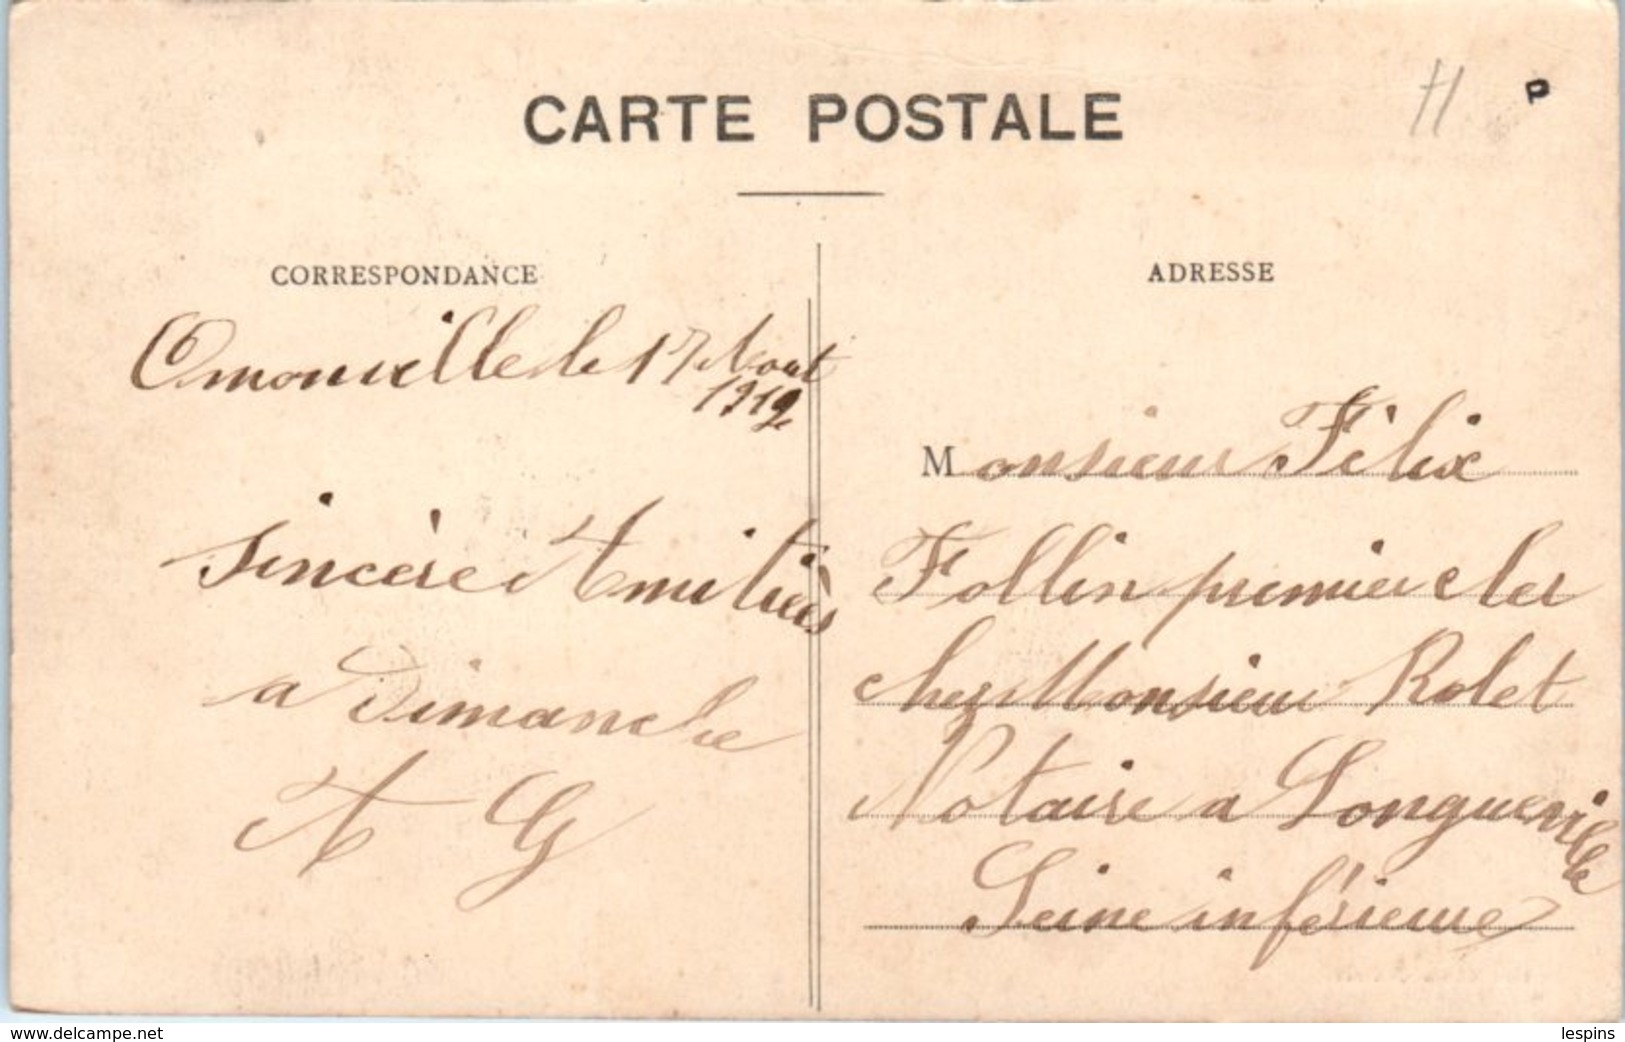 CARTE POSTALE
H P
CORRESPONDANCE
Omonville le 17 Aout
1912
Sincère Amitiées
a Dimanche
A G
ADRESSE
Monsieur Félix
Follin premier cler
chez Monsieur Rolet
Notaire a Longueville
Seine inférieure
www.delcampe.net
lespins